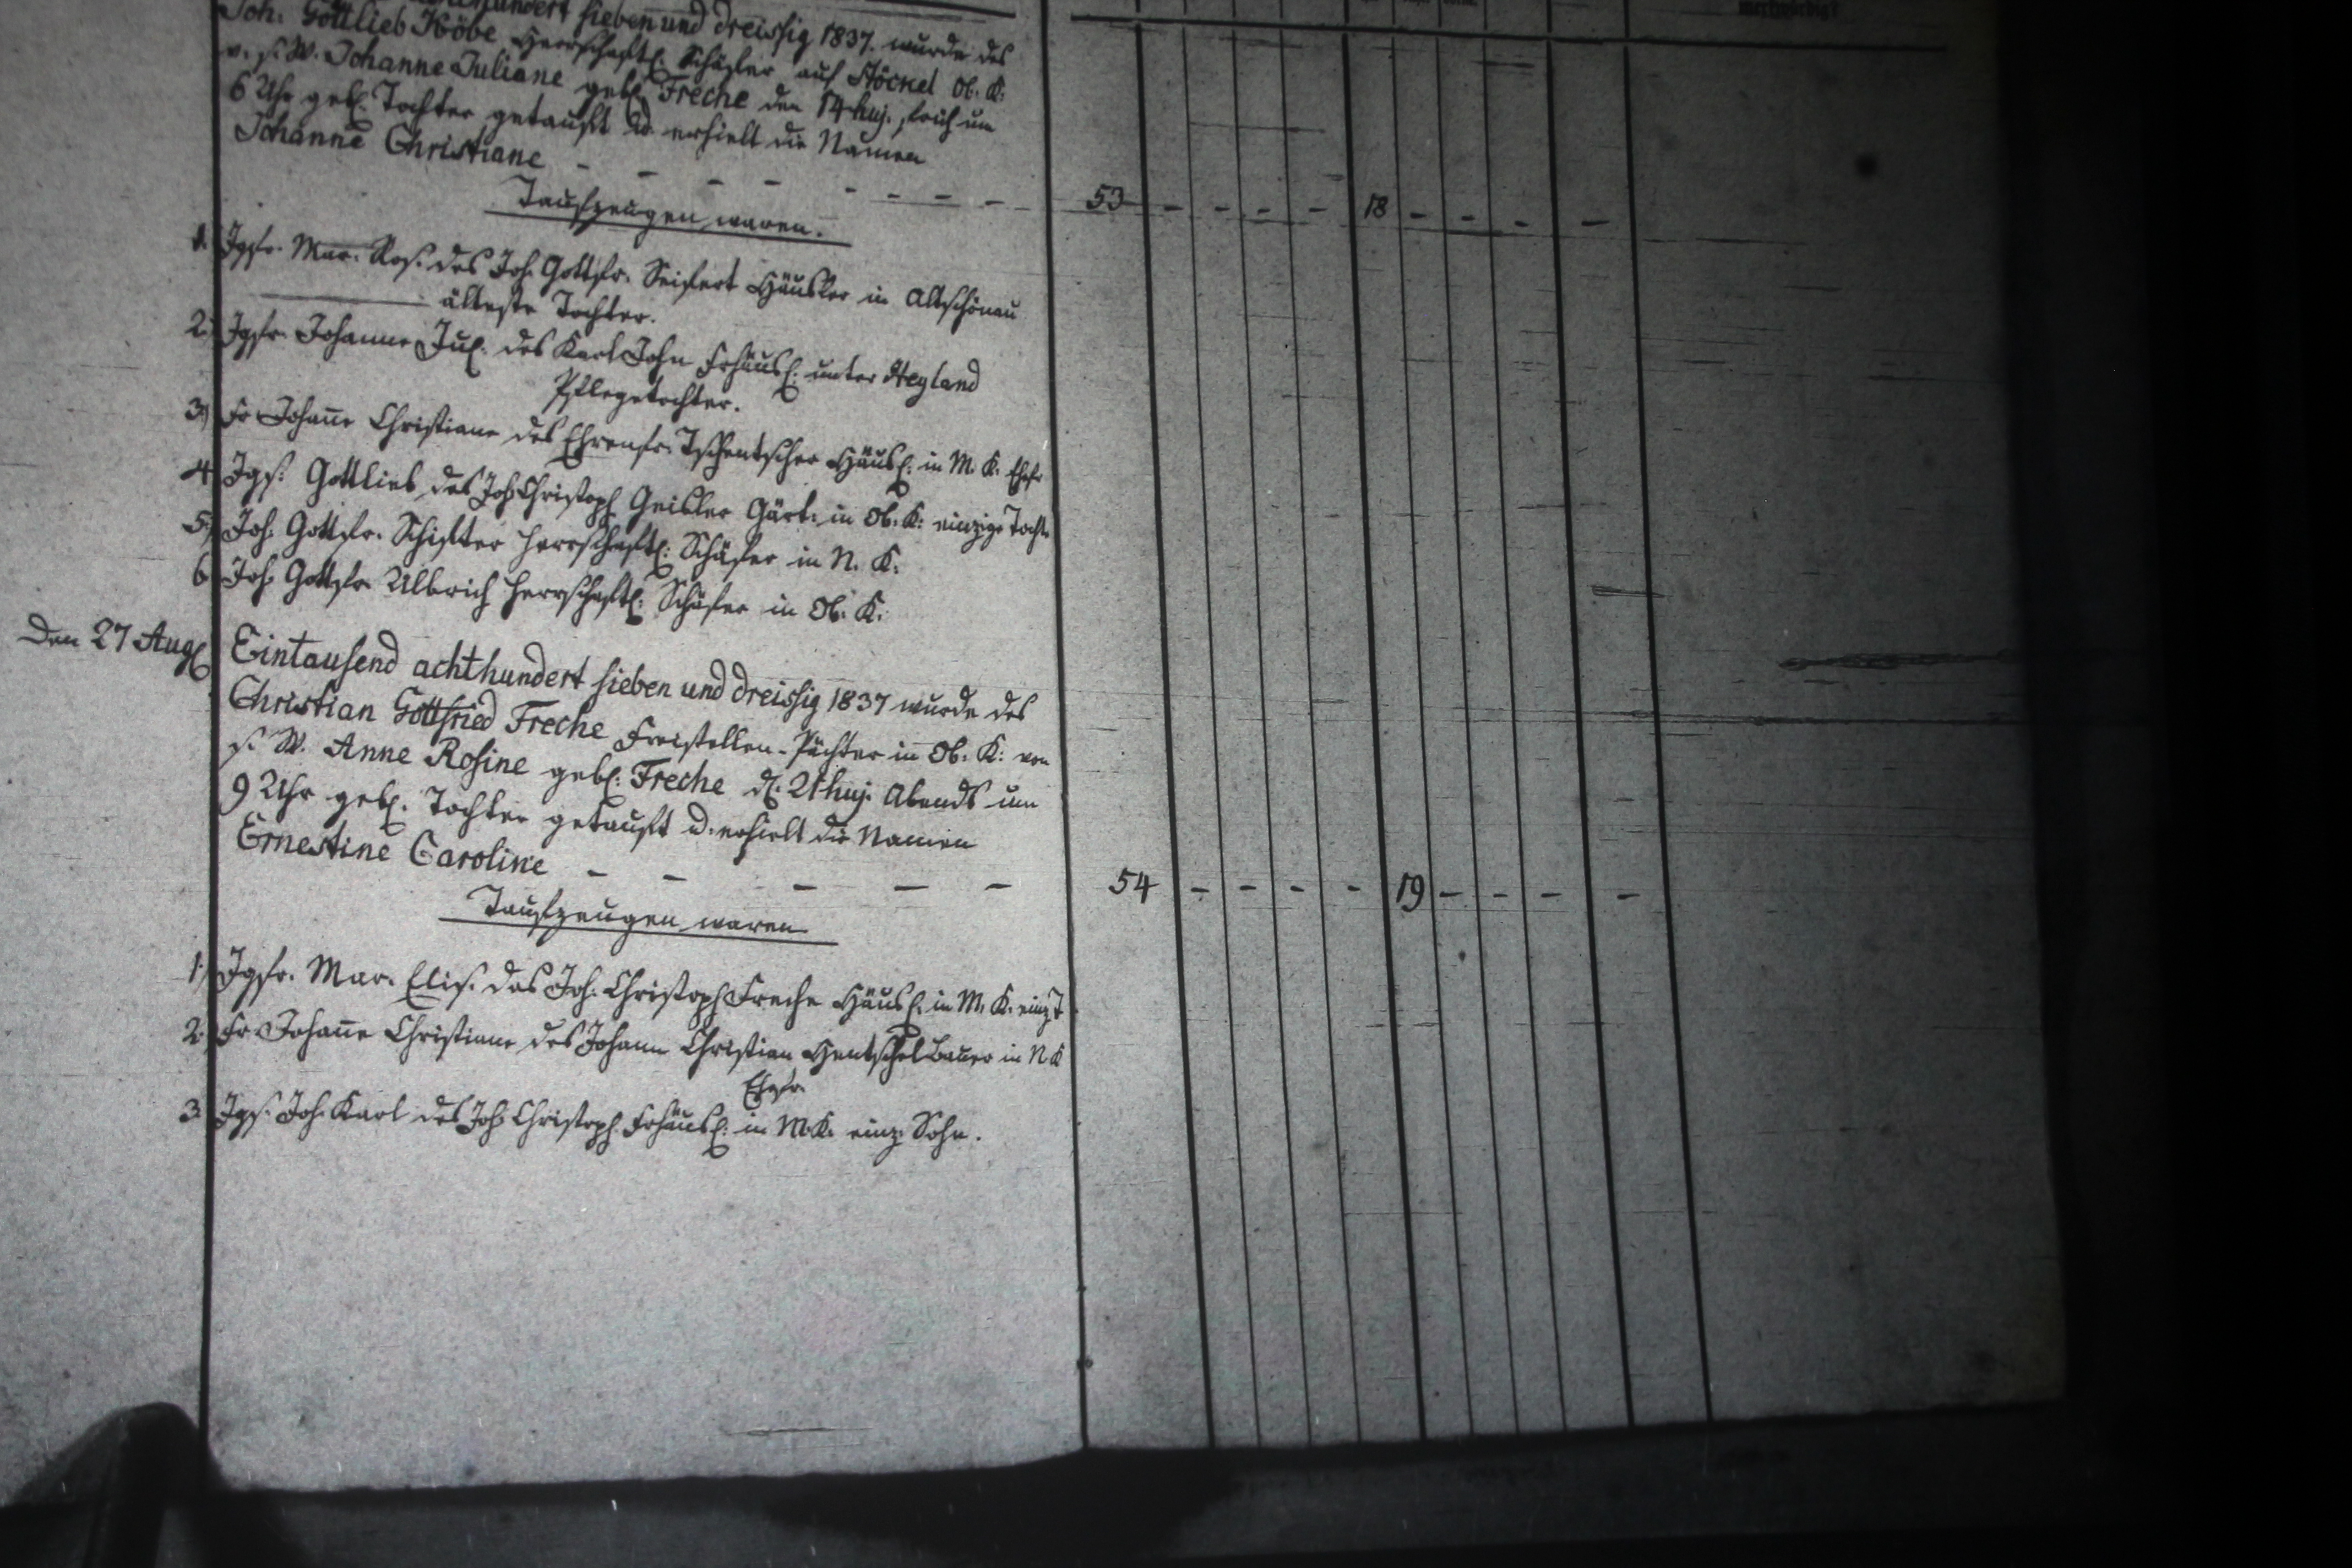 hundert sieben und dreissig 1837. wurde des
Joh: Gottlieb Höbe Herrschaftl: Schäfer auf Stöckel Ob. K.
v. s. W. Johanne Juliane gebl: Freche den 14 huj. früh um
6 Uhr gebl. Tochter getauft u. erhielt die Namen
Johanne Christiane - - - - - - - - 53 - - - - 18 - - - -
Taufzeugen waren.
1. Jgfr. Mar. Ros. des Joh. Gottfr. Seifert Häusler in Altschönau
älteste Tochter.
2. Jgfr. Johanne Jul. des Karl John Frhäusl: unter
Pflegetochter.
3) Fr Johañe Christiane des Ehrenfr. Tschentscher Häusl: in M. K. Ehefr
4 Jgs. Gottlieb des Joh Christoph Geisler Gärt. in Ob. K. einzige Tocht.
5.) Joh. Gottfr. Schifter herrschaftl: Schäfer in N. K.
6 Joh. Gottfr. Ulbrich herrschaftl: Schäfer in Ob. K.
Den 27 Augl Eintausend achthundert sieben und dreissig 1837 wurde des
Christian Gottfried Freche Freistellen-Pächter in Ob. K: von
s. W. Anne Rosine gebl: Freche d. 21 huj. Abends um
9 Uhr gebl. Tochter getauft u. erhielt die Namen
Ernestine Caroline - - - - - 54 - - - - 19 - - - -
Taufzeugen waren
1.) Jgfr. Mar. Elis. des Joh. Christoph Freche Häusl. in M. K. einz T
2. Fr Johañe Christiane des Johann Christian Hentschel Bauer in N K
Ehefr.
3 Jgs. Joh. Karl des Joh Christoph Frhäusl: in M. K. einz. Sohn.